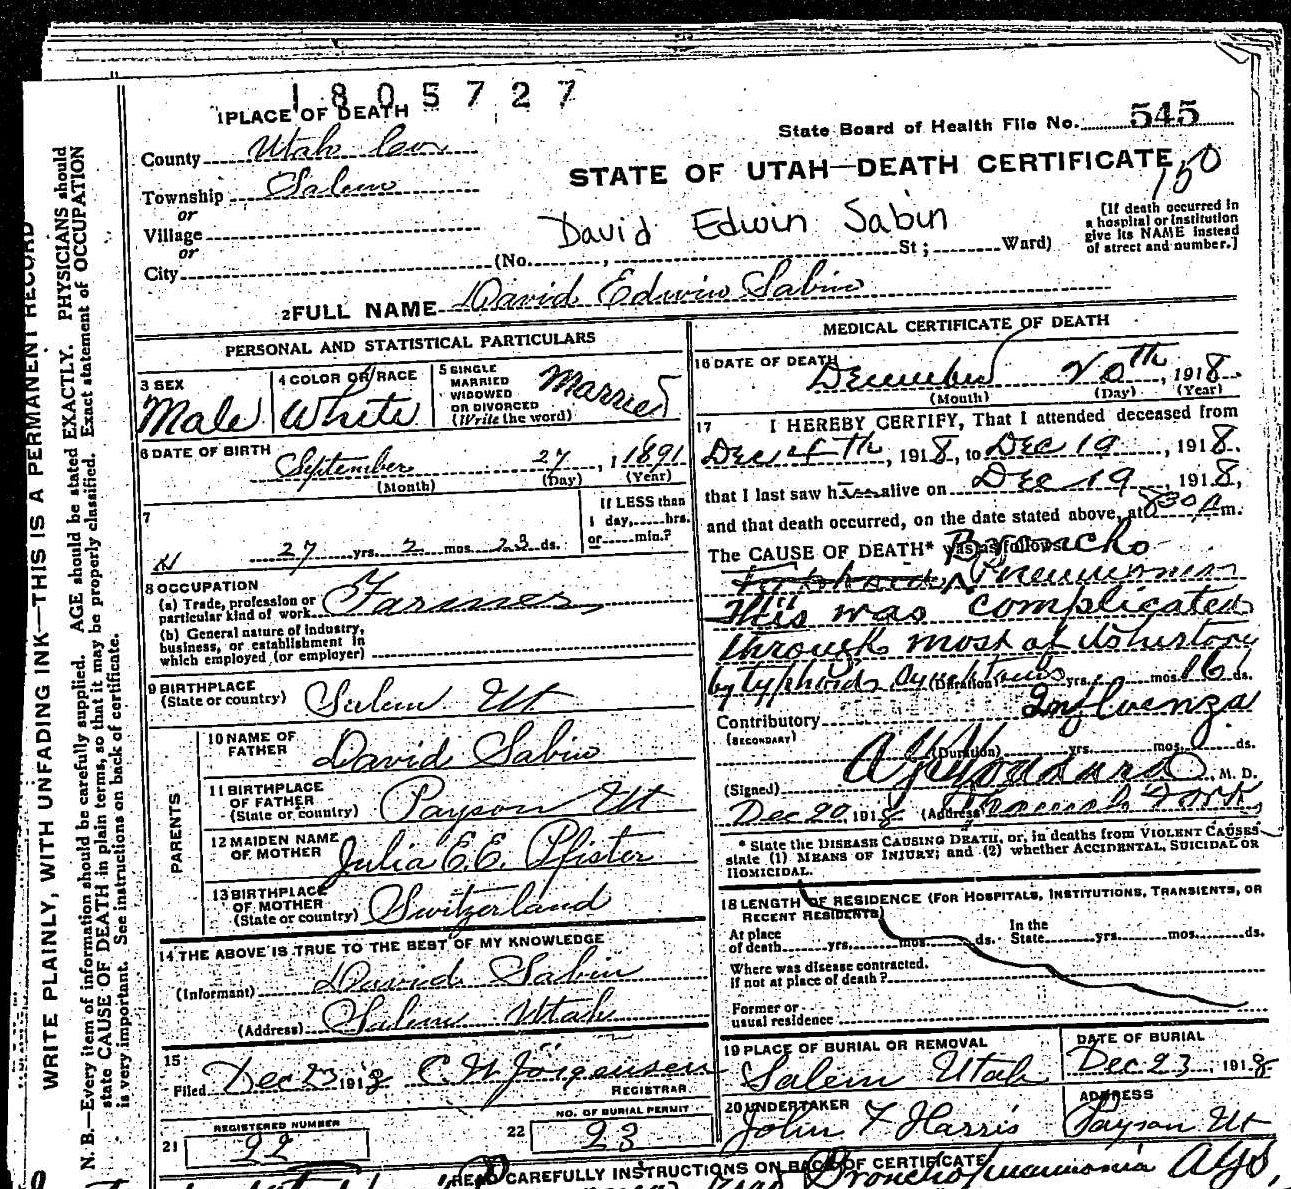 1 8 0 5 7 2 7
1 PLACE OF DEATH
State Board of Health File No. 545
County Utah Co
STATE OF UTAH—DEATH CERTIFICATE
150
Township Salem
or
Village
David Edwin Sabin
[If death occurred in
a hospital or institution
give its NAME instead
of street and number.]
or
City (No. , St; Ward)
2 FULL NAME David Edwin Sabin
PERSONAL AND STATISTICAL PARTICULARS
3 SEX
Male
4 COLOR OR RACE
White
5 SINGLE
MARRIED
WIDOWED
OR DIVORCED
(Write the word)
Married
6 DATE OF BIRTH
September 27, 1891
(Month) (Day) (Year)
7
27 yrs. 2 mos. 23 ds.
If LESS than
1 day, hrs.
or min.?
8 OCCUPATION
(a) Trade, profession or
particular kind of work Farmer
(b) General nature of industry,
business, or establishment in
which employed (or employer)
9 BIRTHPLACE
(State or country) Salem Ut
PARENTS
10 NAME OF
FATHER David Sabin
11 BIRTHPLACE
OF FATHER
(State or country) Payson Ut
12 MAIDEN NAME
OF MOTHER Julia E.E. Pfister
13 BIRTHPLACE
OF MOTHER
(State or country) Switzerland
14 THE ABOVE IS TRUE TO THE BEST OF MY KNOWLEDGE
(Informant) David Sabin
(Address) Salem Utah
15
Filed Dec 23 1918 C W Jorgensen
REGISTRAR
REGISTERED NUMBER
21 22
NO. OF BURIAL PERMIT
22 23
MEDICAL CERTIFICATE OF DEATH
16 DATE OF DEATH
December 20th, 1918
(Month) (Day) (Year)
17 I HEREBY CERTIFY, That I attended deceased from
Dec 4th, 1918, to Dec 19, 1918.
that I last saw him alive on Dec 19, 1918,
and that death occurred, on the date stated above, at 830 A m.
The CAUSE OF DEATH* was as follows: Broncho
Pneumonia
This was complicated
through most of its history
by typhoid symptoms (Duration) yrs. mos. 16 ds.
Contributory Influenza
(SECONDARY)
(Duration) yrs. mos. ds.
(Signed) M. D.
Dec 20, 1918 (Address) Spanish Fork
* State the DISEASE CAUSING DEATH, or, in deaths from VIOLENT CAUSES
state (1) MEANS OF INJURY; and (2) whether ACCIDENTAL, SUICIDAL OR
HOMICIDAL.
18 LENGTH OF RESIDENCE (FOR HOSPITALS, INSTITUTIONS, TRANSIENTS, OR
RECENT RESIDENTS)
At place
of death yrs. mos. ds.
In the
State yrs. mos. ds.
Where was disease contracted.
if not at place of death?
Former or
usual residence
19 PLACE OF BURIAL OR REMOVAL
Salem Utah
DATE OF BURIAL
Dec 23, 1918
20 UNDERTAKER
John F Harris
ADDRESS
Payson Ut
READ CAREFULLY INSTRUCTIONS ON BACK OF CERTIFICATE
Bronchopneumonia
WRITE PLAINLY, WITH UNFADING INK—THIS IS A PERMANENT RECORD
N. B.—Every item of information should be carefully supplied. AGE should be stated EXACTLY. PHYSICIANS should
state CAUSE OF DEATH in plain terms, so that it may be properly classified. Exact statement of OCCUPATION
is very important. See instructions on back of certificate.